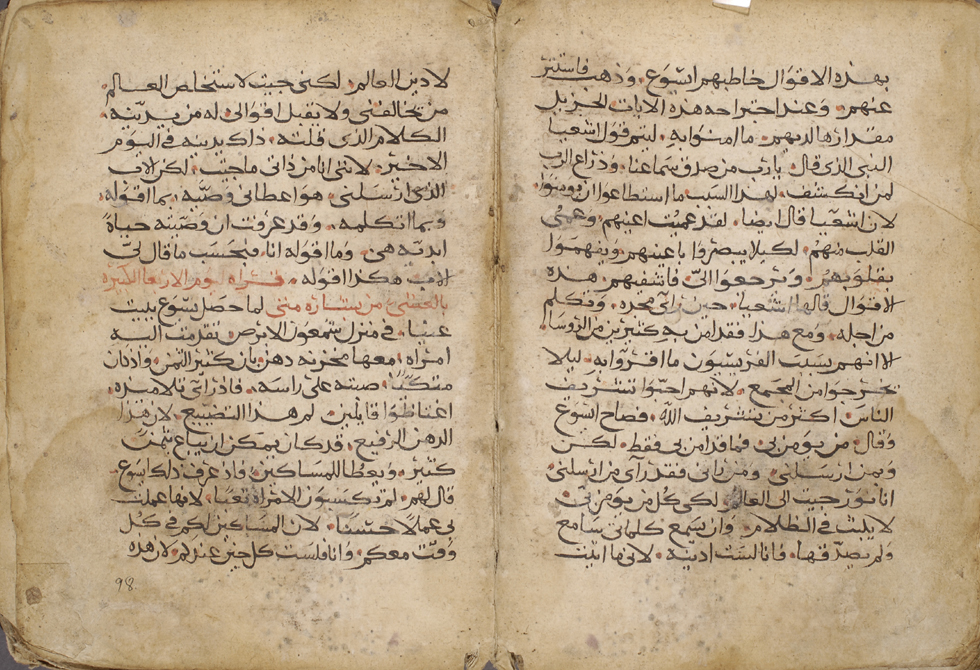 بهذه الاقوال خاطبهم ايسوع، وذهب فاستتر
عنهم، وعند اجتراحه هذه الايات الجزيل
مقدارها لديهم، ما امنوا به، ليتم قول اشعيا
النبي الذي قال، يارب من صدق سماعنا، وذراع الرب
لمن انكشف، لهذا السبب ما استطاعوا ان يومنوا،
لان اشعيا قال ايضا، لقد عميت اعينهم، وعمي
القلب منهم، لكيلا يبصروا باعينهم، ويفهموا
بقلوبهم، ويرجعوا اليّ، فاشفيهم، هذه
الاقوال قالها اشعيا، حين راى مجده، وتكلم
من اجله، ومع هذا فقد امن به كثيرين من الروسا،
الا انهم بسبب الفريسيون ما اقروا به، ليلا
يخرجوا من المجمع، لانهم احبوا تشريف
الناس، اكثر من تشريف الله، فصاح ايسوع
وقال، من يومن بي، فما قد امن بي فقط، لكن
وبمن ارسلني، ومن راني فقد راى من ارسلني،
انا نور جيت الى العالم، لكي كل من يومن بي،
لا يلبث في الظلام، وان يسمع كلماتي سامع
ولم يصدقها، فانا لست ادينه، لانني ما اتيت
لادين العالم، لكني جيت لاستخلص العالم،
من يخالفني ولا يقبل اقوالي، له من يدينه،
الكلام الذي قلته، ذاك يدينه في اليوم
الاخير، لانني انا من ذاتي ما جيت، لكن الاب
الذي ارسلني، هو اعطاني وصيه، بما اقوله،
وبما اتكلمه، وقد عرفت ان وصيته حياة
ابديه هي، وما اقوله انا، فبحسب ما قال لي
الاب هكذا اقوله، قراه يوم الاربعا الكبيره
بالعظمى من بشاره متى لما حصل ايسوع ببيت
عنيا، في منزل سمعون الابرص تقدمت اليه
امراه، معها مخزنه دهن بان كثير الثمن، واذ كان
متكئا، صبته على راسه، فاذ راى تلامذه،
اغتاظوا قايلين، لم هذا التضييع، لان هذا
الدهن الرفيع، قد كان يمكن ان يباع بثمن
كثير، ويعطا للمساكين، فاذ عرف ذلك ايسوع
قال لهم، لم تكسبون الامراه تعبا، لانها عملت
بي عملا حسنا، لان المساكين لكم في كل
وقت معكم، وانا فلست كل حين عندكم، لان هذه
98